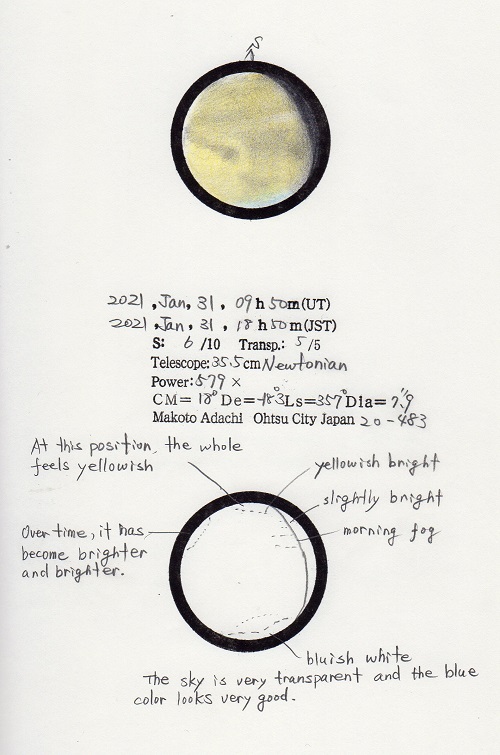 S
2021, Jan, 31, 09h50m(UT)
2021, Jan, 31, 18h50m(JST)
S: 6/10 Transp.: 5/5
Telescope: 35.5cm Newtonian
Power: 579×
CM=18° De=-18.3 Ls=357° Dia=7.″9
Makoto Adachi Ohtsu City Japan 20-483
At this position, the whole
feels yellowish
yellowish bright
slightly bright
morning fog
Over time, it has
become brighter
and brighter.
bluish white
The sky is very transparent and the blue
color looks very good.